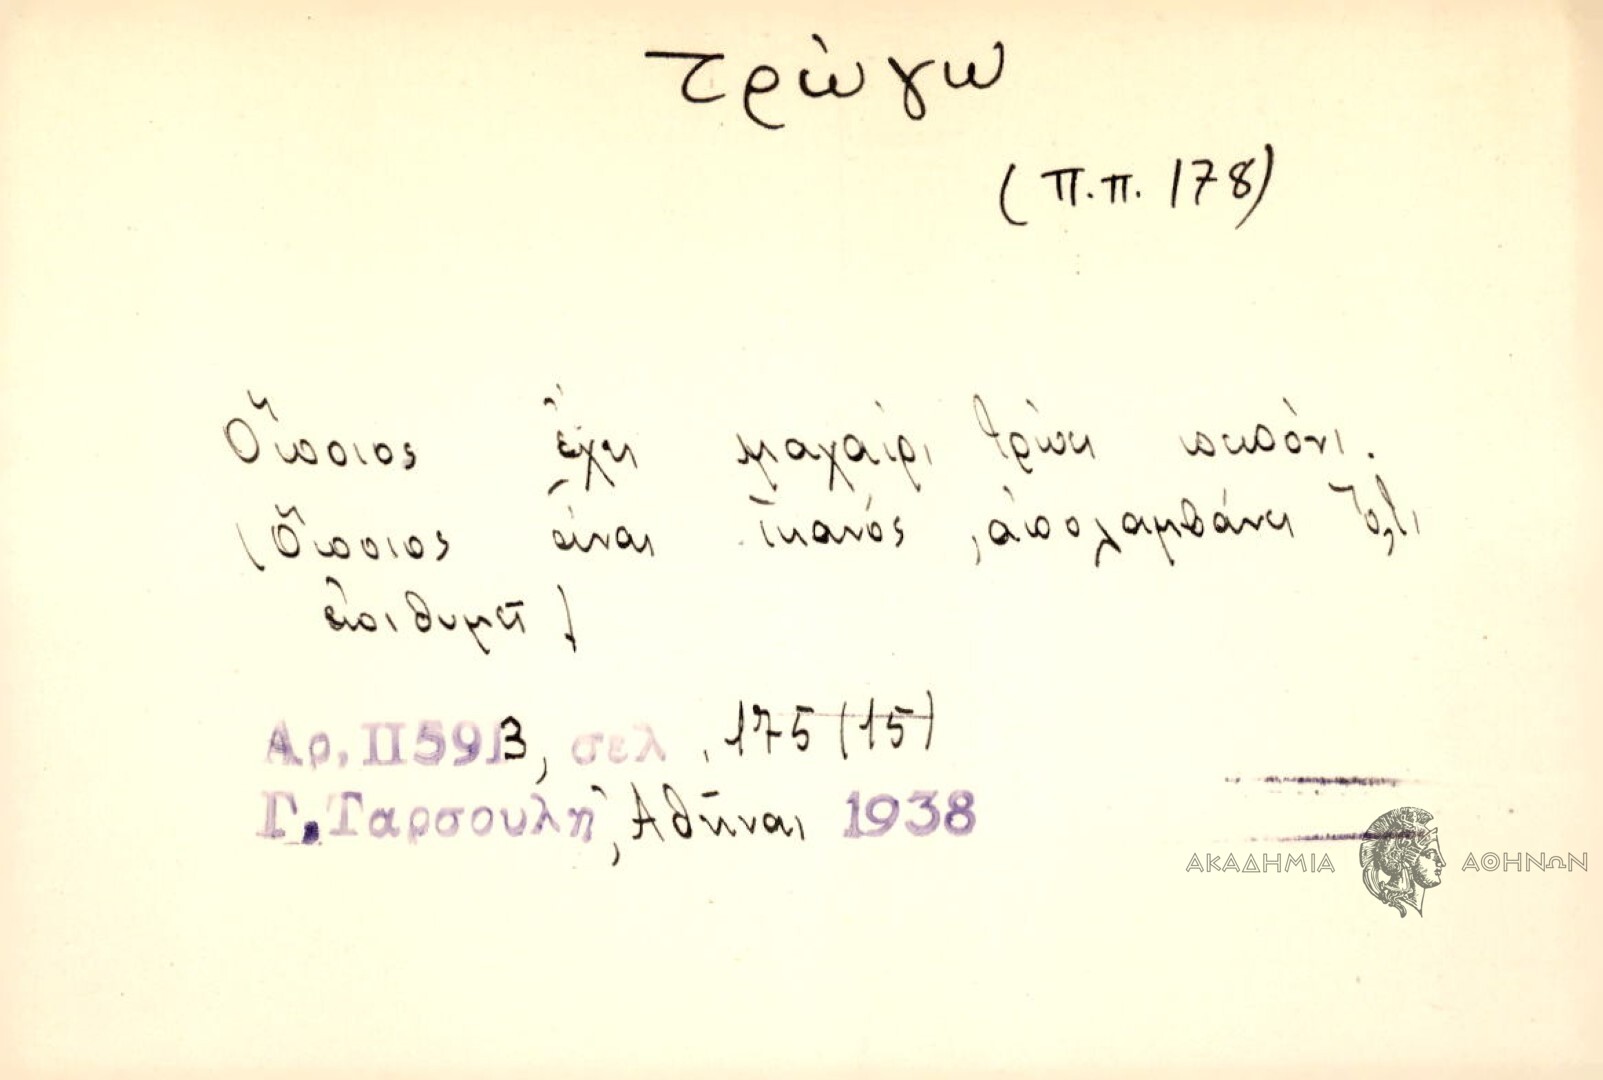 τρώγω
(π.π. 178)
Ὅποιος ἔχει μαχαίρι τρώει πεπόνι.
(Ὅποιος εἶναι ἱκανός, ἀπολαμβάνει ὅ,τι
ἐπιθυμεῖ)
Αρ. ΙΙ 591 Β, σελ. 175 (15)
Γ. Ταρσούλη, Ἀθῆναι 1938
ΑΚΑΔΗΜΙΑ ΑΘΗΝΩΝ